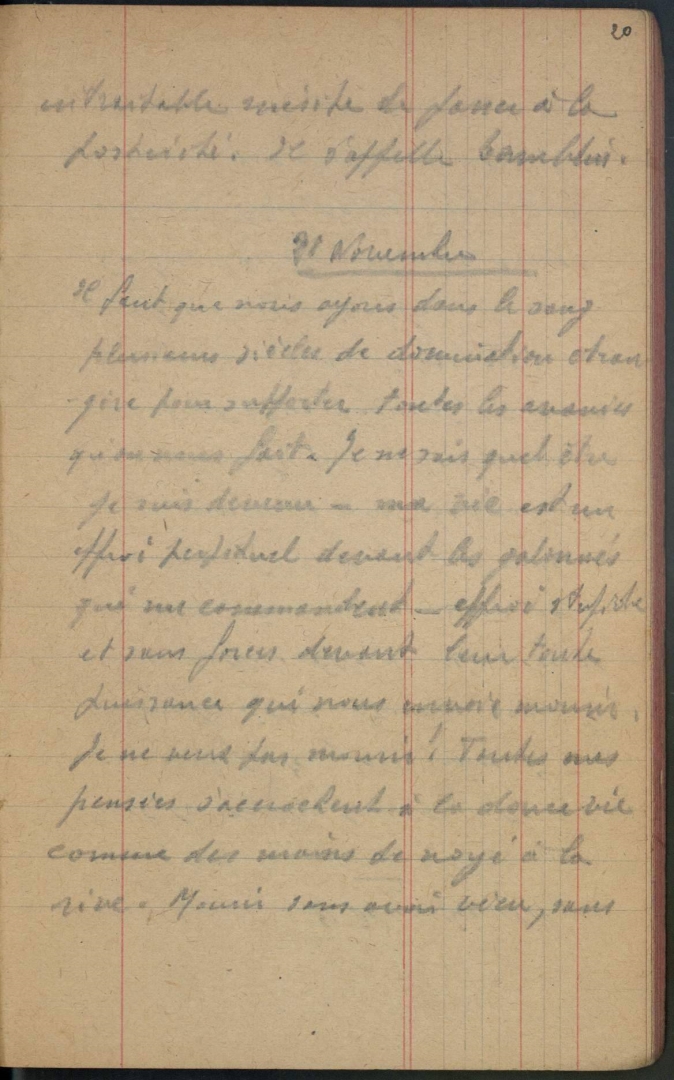 20
intraitable mérite de passer à la
postérité. Il s'appelle
Novembre
Il faut que nous ayons dans le sang
plusieurs siècles de domination étran
gère pour supporter toutes les avanies
qu'on nous fait. Je ne sais quel être
je suis devenu – ma vie est un
effroi perpétuel devant les galonnés
qui me commandent – effroi stupide
et sans forces devant leur toute
puissance qui nous envoie mourir.
Je ne veux pas mourir ! Toutes mes
pensées s'accrochent à la douce vie
comme des mains de noyé à la
rive. Mourir sans avoir vécu, sans